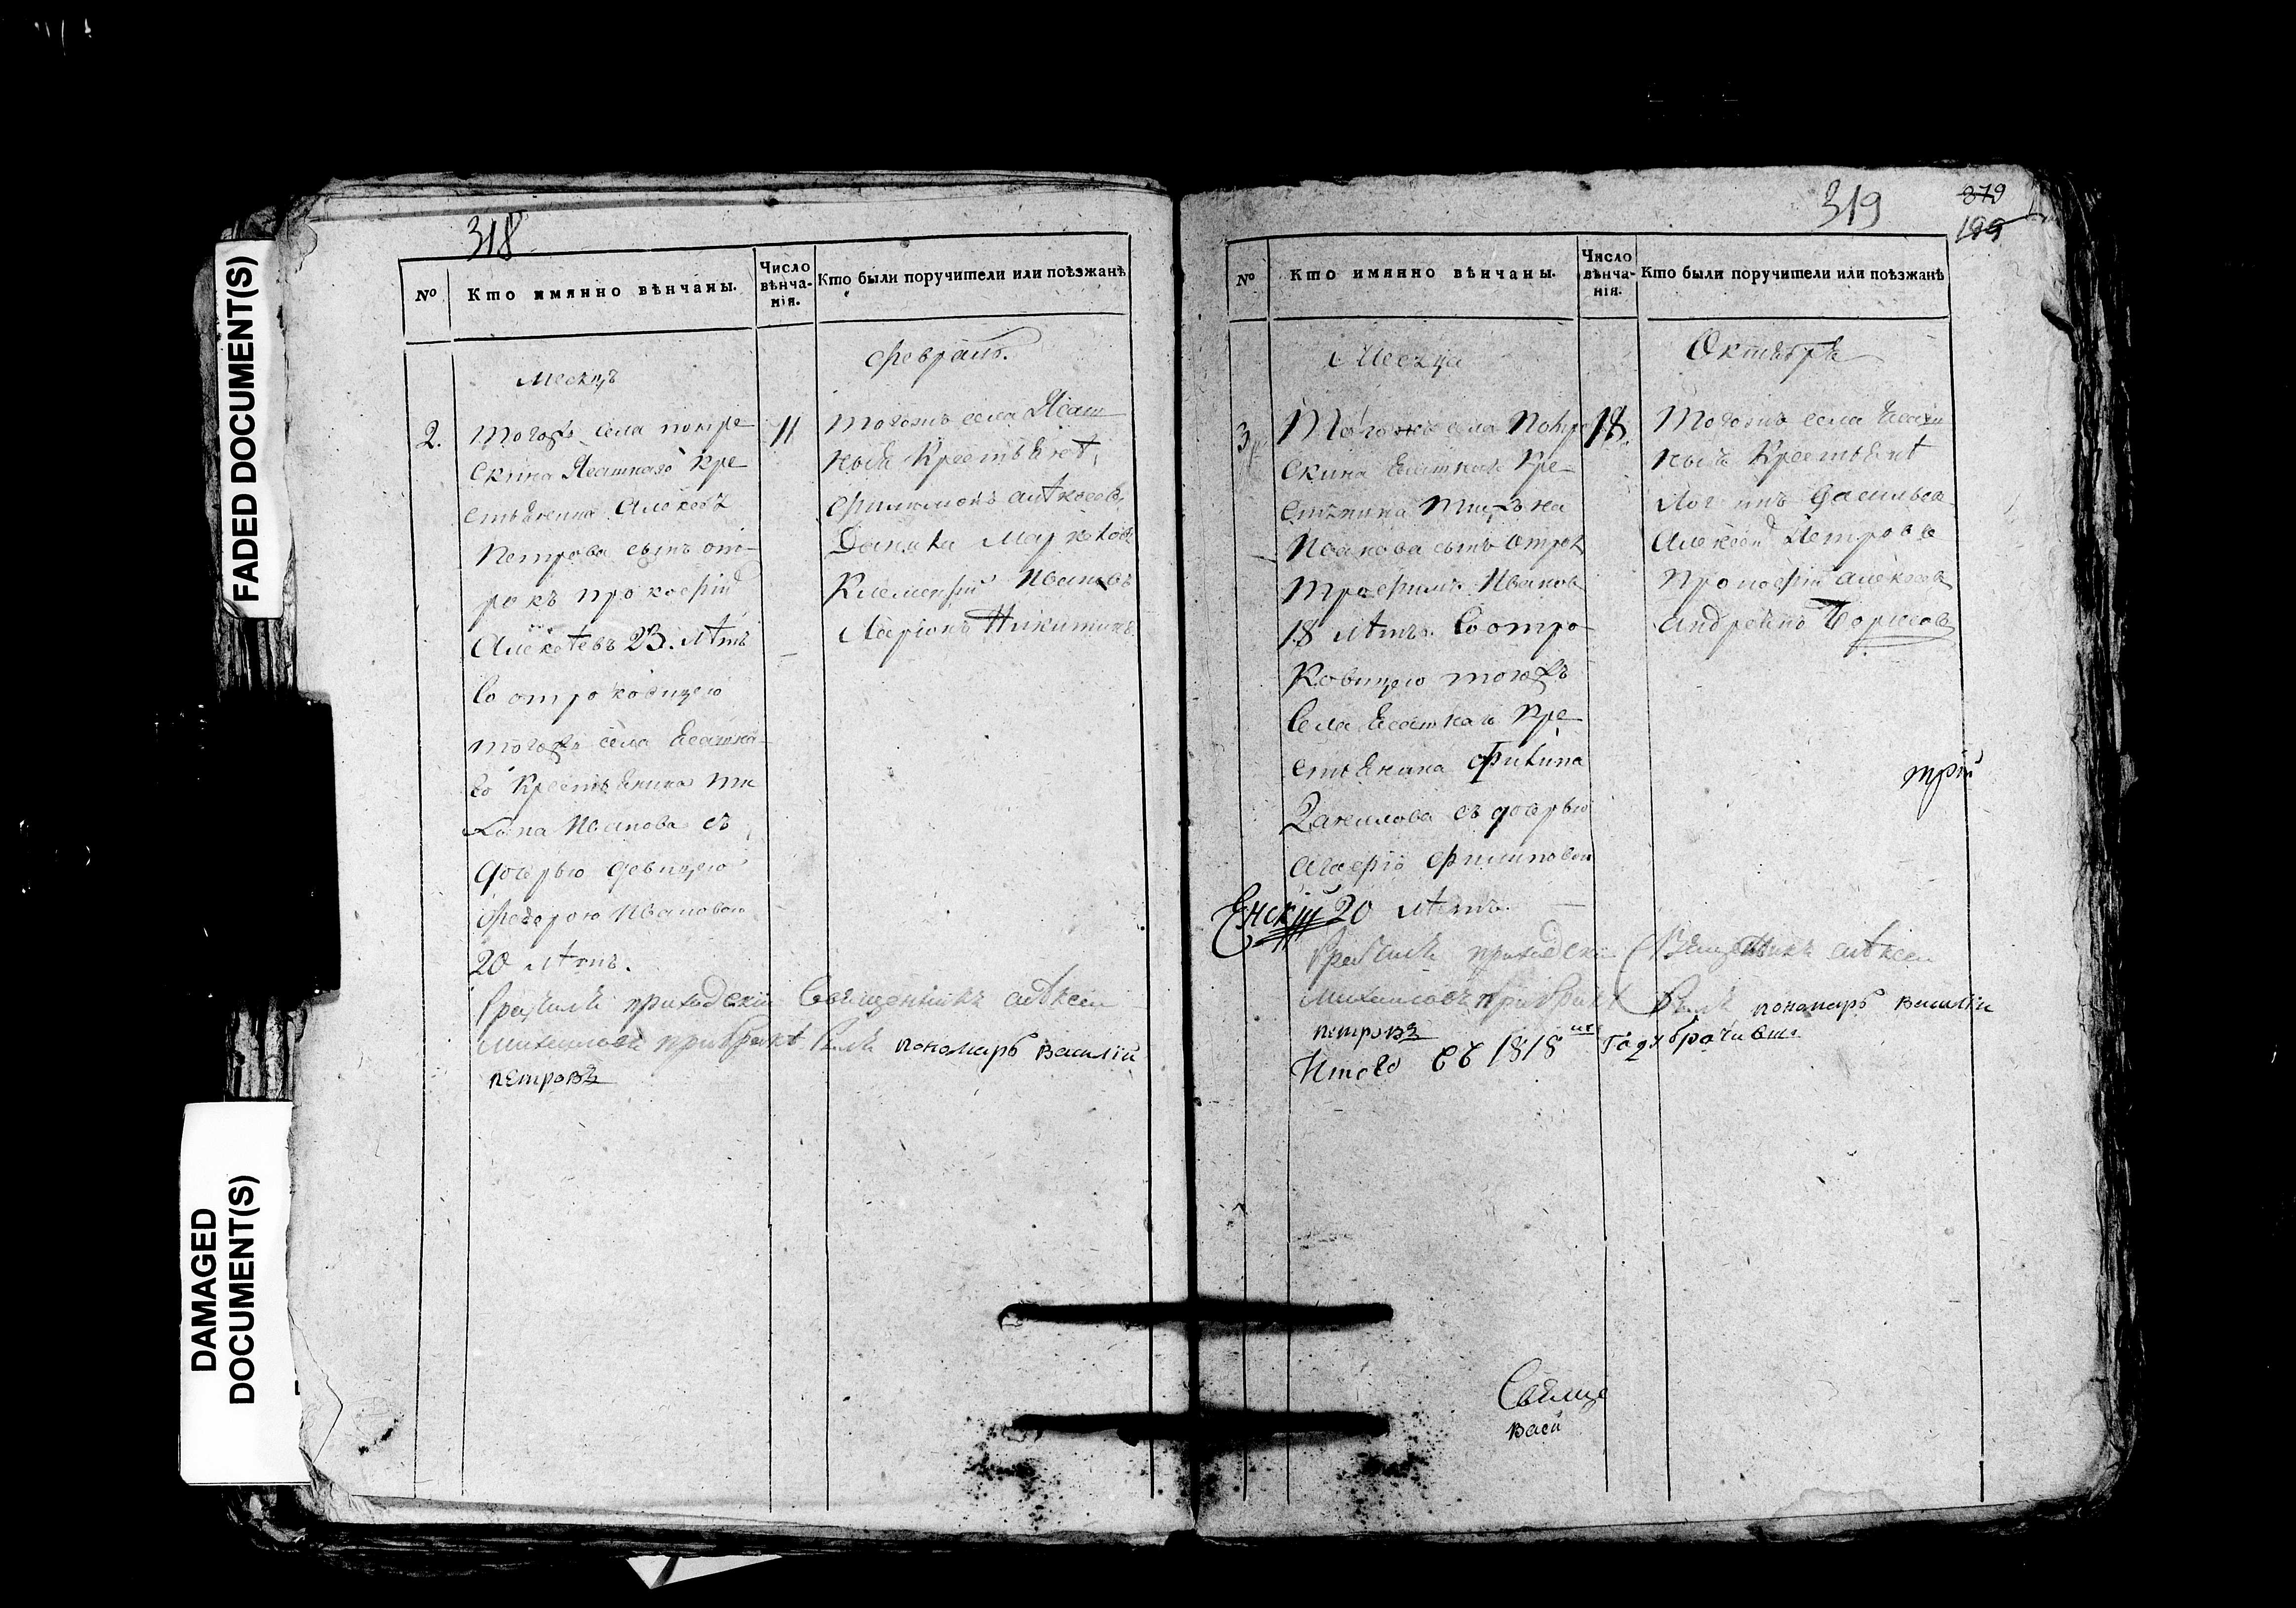 FADED DOCUMENT(S)
DAMAGED
DOCUMENT(S)
318
№
Кто имянно вѣнчаны.
Число
вѣнча-
нія.
Кто были поручители или поѣзжанѣ
месяцъ
февраль.
2.
тогожъ села покре
скина Ясашнаго кре
стьянина Алексѣя
Петрова сынъ от
рокъ прокофій
Алексѣевъ 23. лѣтъ
со отроковицею
тогожъ села Ясашна
го крестьянина
Иванова съ
дочерью девицею
Федорою Ивановою
20 лѣтъ.
11
тогожъ села Ясаш
ные крестьяне
филимонъ алѣксеевъ
Данила
Клементий Ивановъ
Ларионъ Никитинъ
приходскій Священникъ алѣксеи
михаиловъ при пономарь василій
петровъ
319
379
199
№
Кто имянно вѣнчаны.
Число
вѣнча-
нія.
Кто были поручители или поѣзжанѣ
Месяца
Октября
3
Тогожъ села Покре
скина Ясашнаго кре
стянина
Иванова сынъ отрок
трофимъ Иванов
18 лѣтъ. Со отро
ковицею тогожъ
села Ясашнаго кре
стьянина Филипа
Данилова съ дочерью
Филиповой
20 лѣтъ.
18.
Тогожъ села Ясаш
ныѣ крестьяне
Логинъ Васильев
Алексей Петровъ
Прокофій алексеев
андреянъ Борисов
трій
Енскій
приходски Священникъ алѣксеи
михаиловъ при пономарь василіи
петровъ
Итого въ 1818 мъ году брачивш.
Свяще
васи